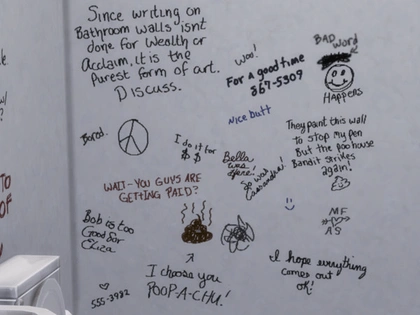 Since writing on
Bathroom walls isnt
done for Wealth or
Acclaim, it is the
Purest form of art.
Discuss.
Woo!
For a good time
867-5309
BAD word
HAPPERS
Nice butt
Bored.
I do it for
$ $
Bella
was
here.
So was
Cassandra!
They paint this wall
to stop my pen
But the poohouse
Bandit strikes
again!
WAIT-YOU GUYS ARE
GETTING PAID?
TO
OF
MF
AS
Bob is too
Good for
Eliza
I choose you
POOP-A-CHU!
I hope everything
comes out
ok!
555-3982